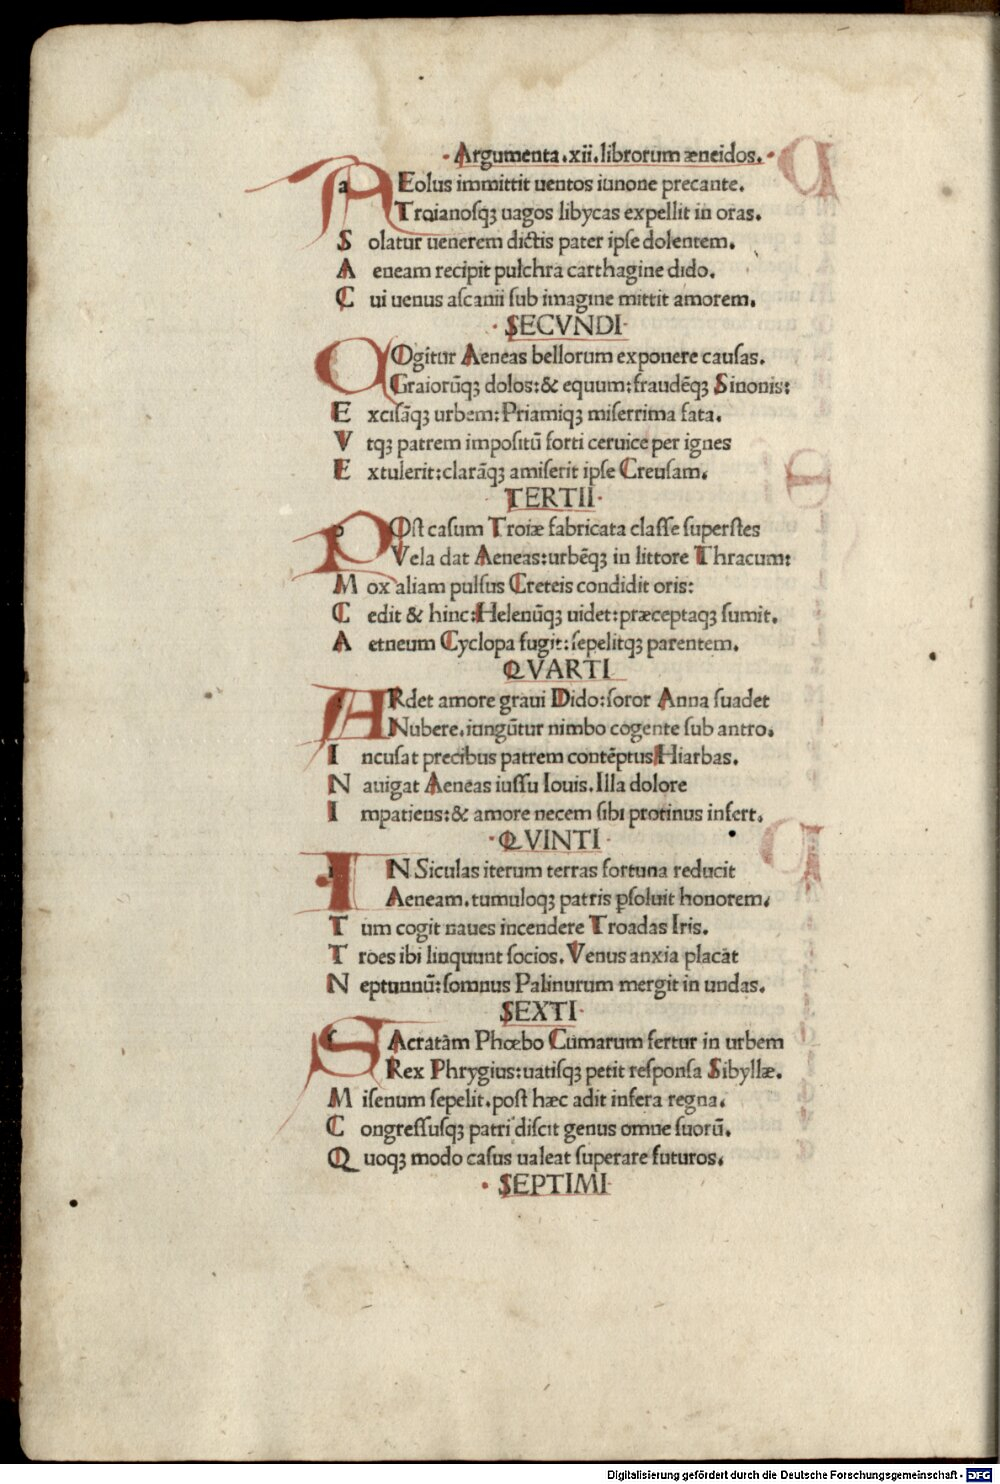 ·Argumenta.xii.librorum æneidos.·
AEolus immittit uentos iunone precante.
Troianosqꝫ uagos libycas expellit in oras.
Solatur uenerem dictis pater ipse dolentem.
Aeneam recipit pulchra carthagine dido.
Cui uenus ascanii sub imagine mittit amorem.
·SECVNDI·
COgitur Aeneas bellorum exponere causas.
Graiorūqꝫ dolos:& equum:fraudēqꝫ Sinonis:
Excisāqꝫ urbem:Priamiqꝫ miserrima fata.
Vtqꝫ patrem impositū forti ceruice per ignes
Extulerit:clarāqꝫ amiserit ipse Creusam.
TERTII·
POst casum Troiæ fabricata classe superstes
Vela dat Aeneas:urbēqꝫ in littore Thracum:
Mox aliam pulsus Creteis condidit oris:
Cedit & hinc:Helenūqꝫ uidet:præceptaqꝫ sumit.
Aetneum Cyclopa fugit:sepelitqꝫ parentem.
QVARTI
ARdet amore graui Dido:soror Anna suadet
Nubere.iungūtur nimbo cogente sub antro.
Incusat precibus patrem contēptus Hiarbas.
Nauigat Aeneas iussu Iouis.Illa dolore
Impatiens:& amore necem sibi protinus infert.
·QVINTI·
IN Siculas iterum terras fortuna reducit
Aeneam.tumuloqꝫ patris ꝑsoluit honorem.
Tum cogit naues incendere Troadas Iris.
Troes ibi linquunt socios.Venus anxia placāt
Neptunnū:somnus Palinurum mergit in undas.
SEXTI·
SAcratām Phœbo Cumarum fertur in urbem
Rex Phrygius:uatisqꝫ petit responsa Sibyllæ.
Misenum sepelit.post hæc adit infera regna.
Congressusqꝫ patri discit genus omne suorū.
Quoqꝫ modo casus ualeat superare futuros.
·SEPTIMI·
Digitalisierung gefördert durch die Deutsche Forschungsgemeinschaft - DFG